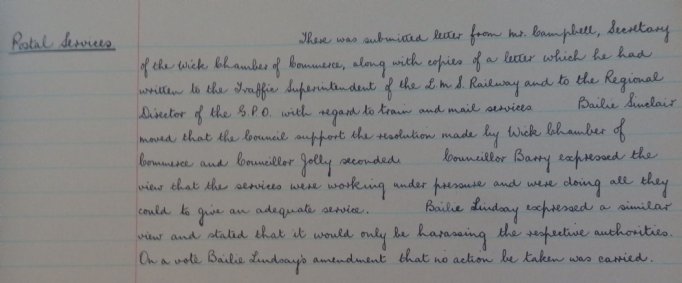 Postal Services
There was submitted letter from Mr. Campbell, Secretary
of the Wick Chamber of Commerce, along with copies of a letter which he had
written to the Traffic Superintendent of the L.M.S. Railway and to the Regional
Director of the G.P.O. with regard to train and mail services Bailie Sinclair
moved that the Council support the resolution made by Wick Chamber of
Commerce and Councillor Jolly seconded. Councillor Barry expressed the
view that the services were working under pressure and were doing all they
could to give an adequate service. Bailie Lindsay expressed a similar
view and stated that it would only be harassing the respective authorities.
On a vote Bailie Lindsay's amendment that no action be taken was carried.